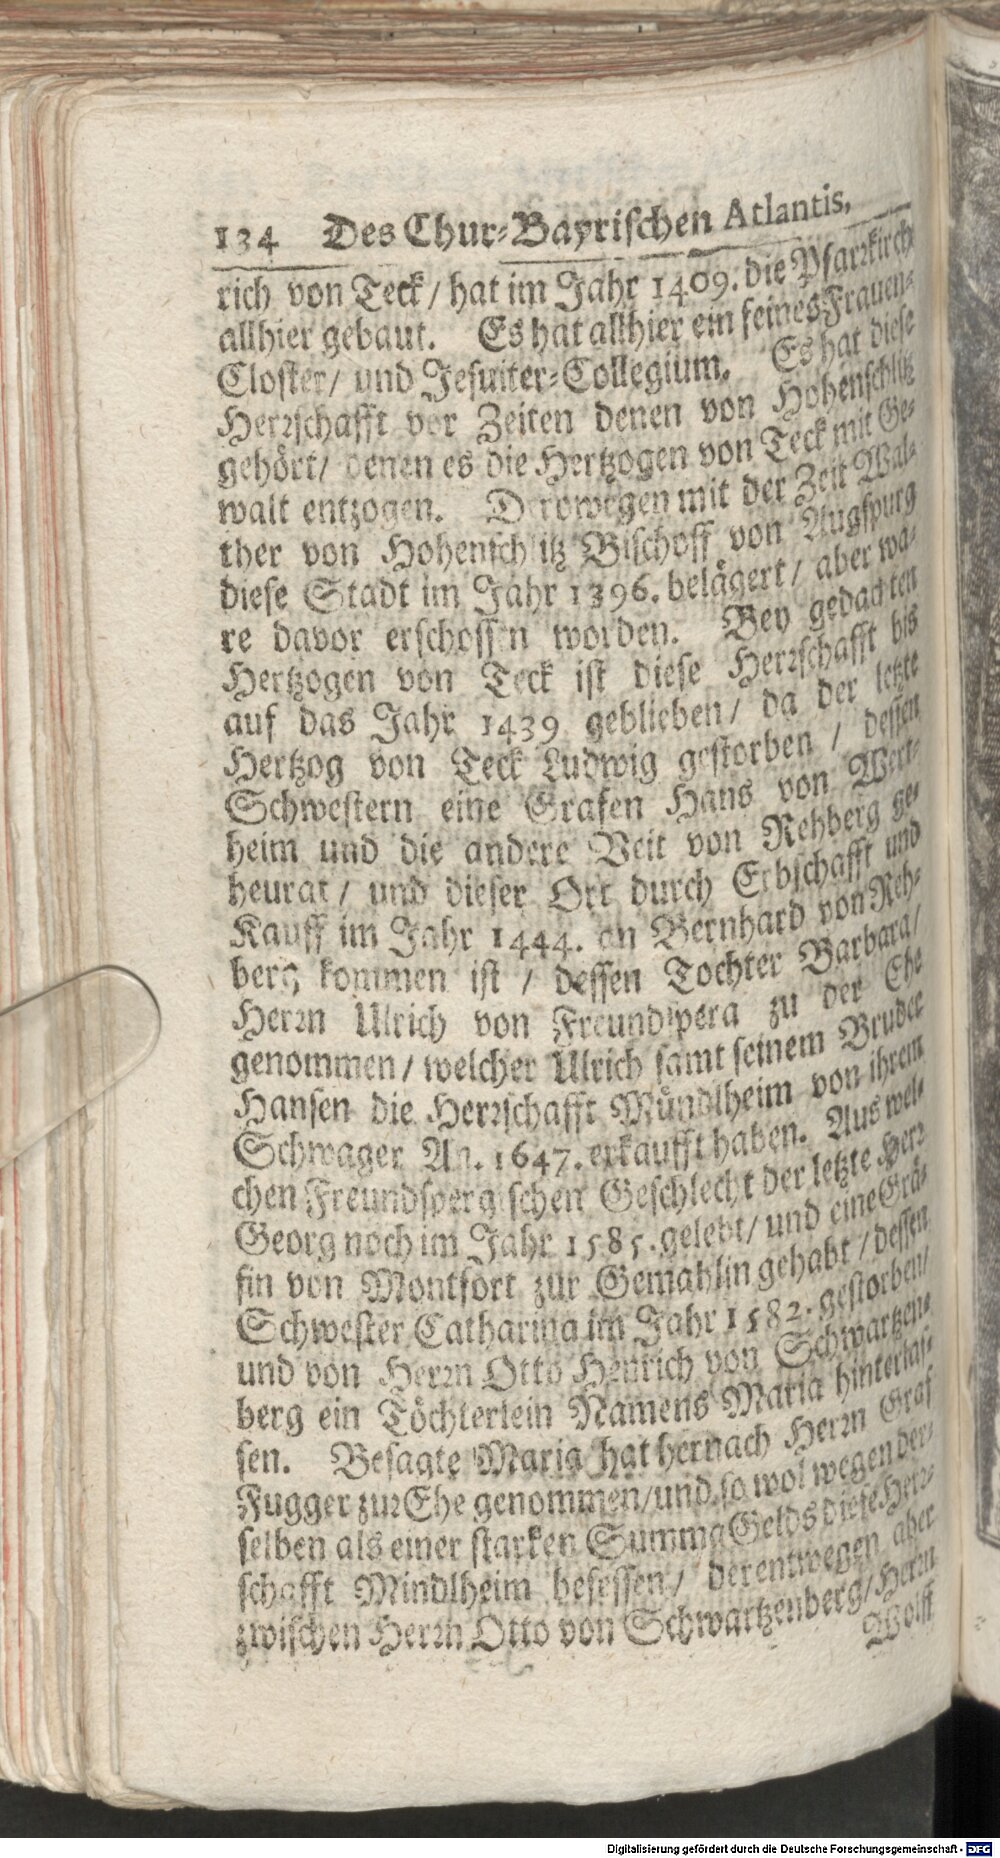 134 Des Chur-Bayrischen Atlantis,
rich von Teck / hat im Jahr 1409. die Pfarrkirch
allhier gebaut. Es hat allhier ein feines Frauen-
Closter / und Jesuiter-Collegium. Es hat diese
Herrschafft vor Zeiten denen von Hohenschlitz
gehört / denen es die Hertzogen von Teck mit Ge-
walt entzogen. Derowegen mit der Zeit Wal-
ther von Hohenschlitz Bischoff von Augspurg
diese Stadt im Jahr 1396. belägert / aber wa-
re davor erschossen worden. Bey gedachten
Hertzogen von Teck ist diese Herrschafft bis
auf das Jahr 1439 geblieben / da der letzte
Hertzog von Teck Ludwig gestorben / dessen
Schwestern eine Grafen Hans von Wert-
heim und die andere Veit von Rehberg ge-
heurat / und dieser Ort durch Erbschafft und
Kauff im Jahr 1444. an Bernhard von Reh-
berg kommen ist / dessen Tochter Barbara /
Herrn Ulrich von Freundsperg zu der Ehe
genommen / welcher Ulrich samt seinem Bruder
Hansen die Herrschafft Mündlheim von ihrem
Schwager An. 1647. erkaufft haben. Aus wel-
chen Freundspergischen Geschlecht der letzte Herr
Georg noch im Jahr 1585. gelebt / und eine Grä-
fin von Montfort zur Gemahlin gehabt / dessen
Schwester Catharina im Jahr 1582. gestorben /
und von Herrn Otto Henrich von Schwartzen-
berg ein Töchterlein Namens Maria hinterlas-
sen. Besagte Maria hat hernach Herrn Graf
Fugger zur Ehe genommen / und so wol wegen der-
selben als einer starken Summa Gelds diese Herr-
schafft Mindlheim besessen / derentwegen aber
zwischen Herrn Otto von Schwartzenberg / Herrn
Wolff
Digitalisierung gefördert durch die Deutsche Forschungsgemeinschaft - DFG